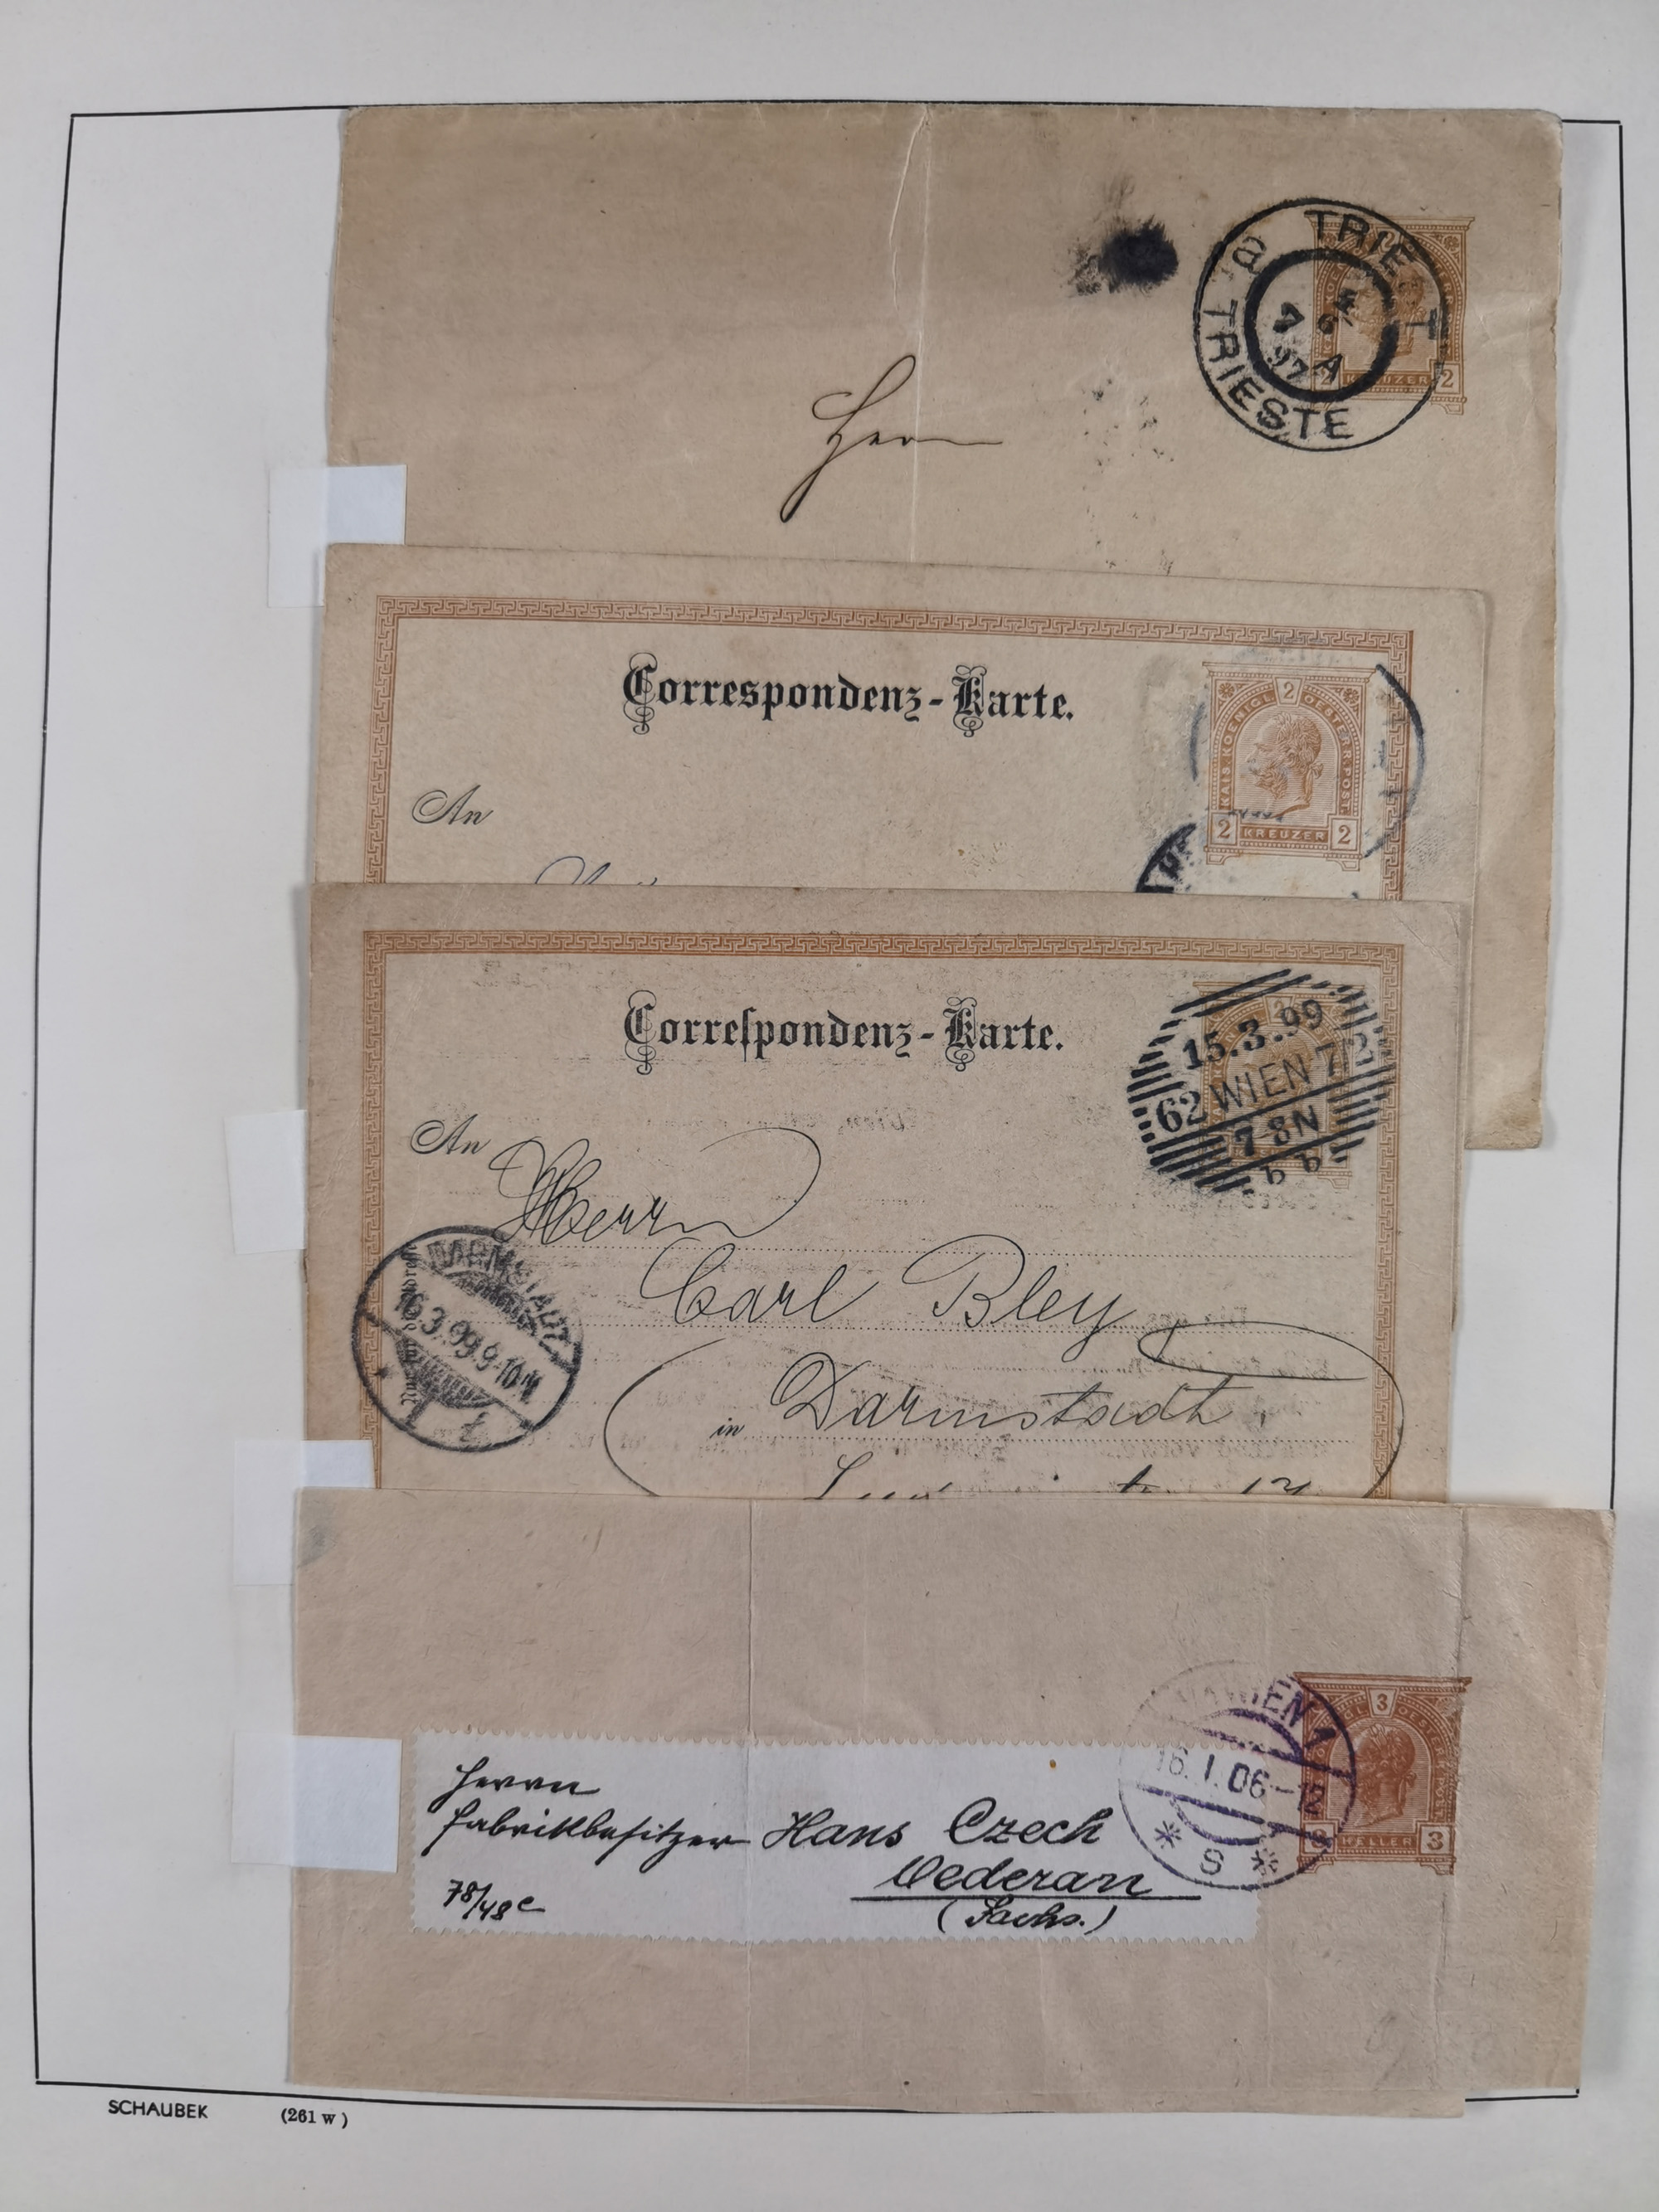 TRIEST
TRIESTE
a
97 A
KREUZER 2
Herrn
Correspondenz-Karte.
2
KAIS. KOENIGL. OESTERR. POST.
2 KREUZER 2
An
Correſpondenz-Karte.
15.3.99
62 WIEN 7/2
7-8N
b b
An
Herrn
Carl Bley
in Darmstadt.
DARMSTADT
16.3.99.9-10
3
WIEN 1
16.I.06-12
* S *
3 HELLER 3
Herrn
Fabrikbesitzer Hans Czech
Oederan
(Sachs.)
78/48e
SCHAUBEK (261 w)